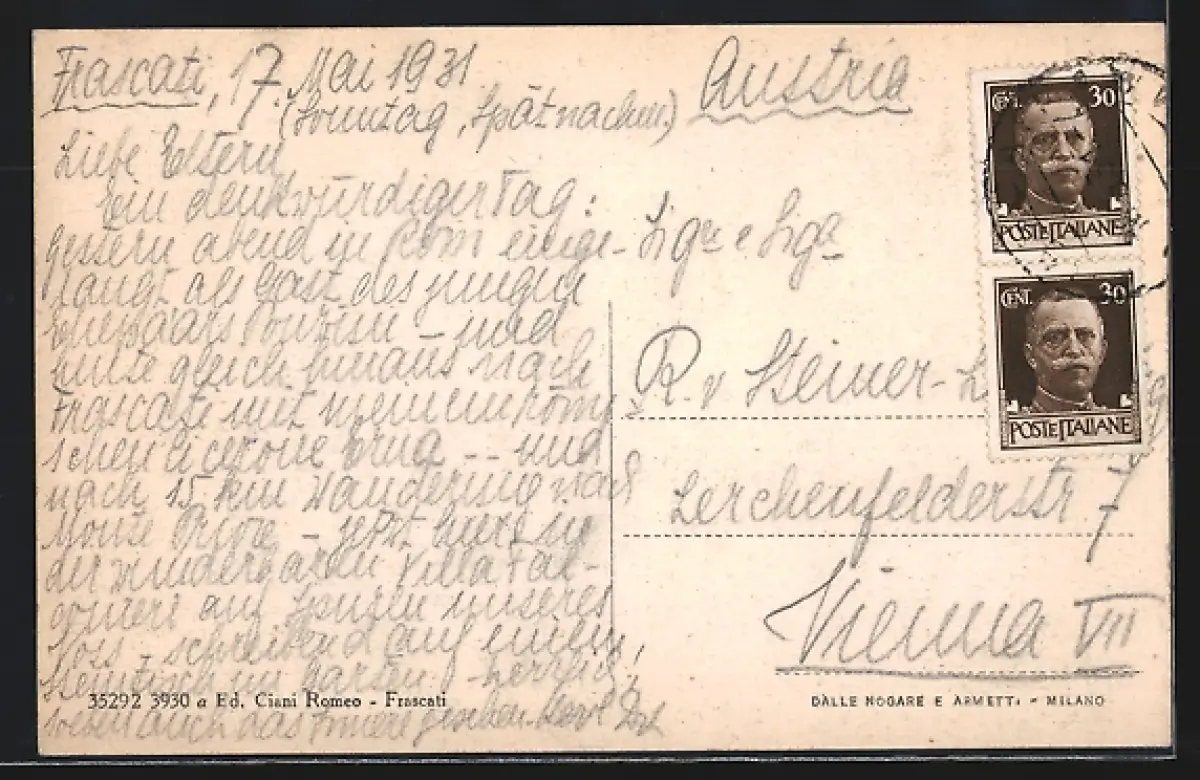 Frascati, 17. Mai 1931
(Sonntag, Spätnachm.)
Liebe Eltern
Ein denkwürdiger Tag:
Gestern abend in Rom einge-
langt als Gast des jungen
Ehepaars – und
heute gleich hinaus nach
Frascati mit meinem römi
schen Cicerone -- und
nach 15 km Wanderung nach
Monte – jetzt hier in
der wundergarten Villa Fal-
conieri auf Spuren unseres
Voss – schreibend auf einem
Steintisch im Garten –
auch das Innere gesehen.
Austria
Sigr e Sigra
R. v Steiner-
Lerchenfelderstr 7
Vienna VII
CENT. 30
POSTE ITALIANE
CENT. 30
POSTE ITALIANE
35292 3930 a Ed. Ciani Romeo - Frascati
DALLE NOGARE E ARMETTI - MILANO